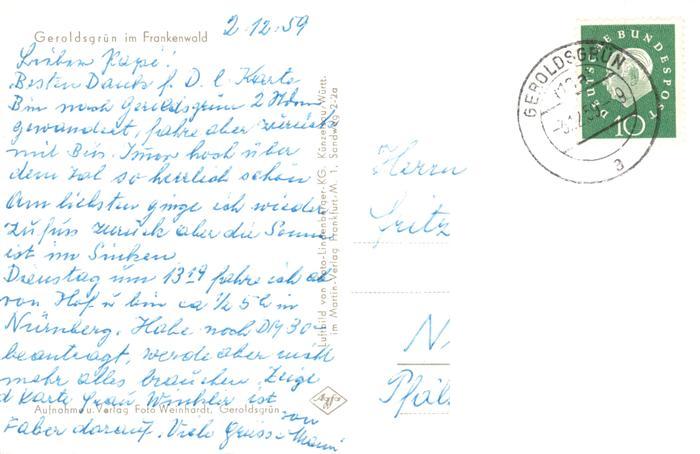 Geroldsgrün im Frankenwald
2.12.59
Lieber Papi!
Besten Dank f. D. l. Karte
Bin nach Geroldsgrün 2 Stdn
gewandert, fahre aber zurück
mit Bus. Immer hoch über
dem Tal so herrlich schön
Am liebsten ginge ich wieder
zu fuss zurück aber die Sonne
ist im Sinken
Dienstag um 13 19 fahre ich ab
von Hof u bin ca ½ 5 h in
Nürnberg. Habe noch DM 30-
beantragt, werde aber nicht
mehr alles brauchen. Zeige
d Karte Frau Winkler ist
von
Faber darauf. Viele Grüsse Mami
Aufnahme u. Verlag Foto Weinhardt, Geroldsgrün
Luftbild von Foto-Lindenberger-KG. Künzelsau/Württ.
im Martin-Verlag Frankfurt/M. 1, Sandweg 2-2a
Agfa
DEUTSCHE BUNDESPOST
10
GEROLDSGRÜN
a
Herrn
Fritz
N
Pfäl